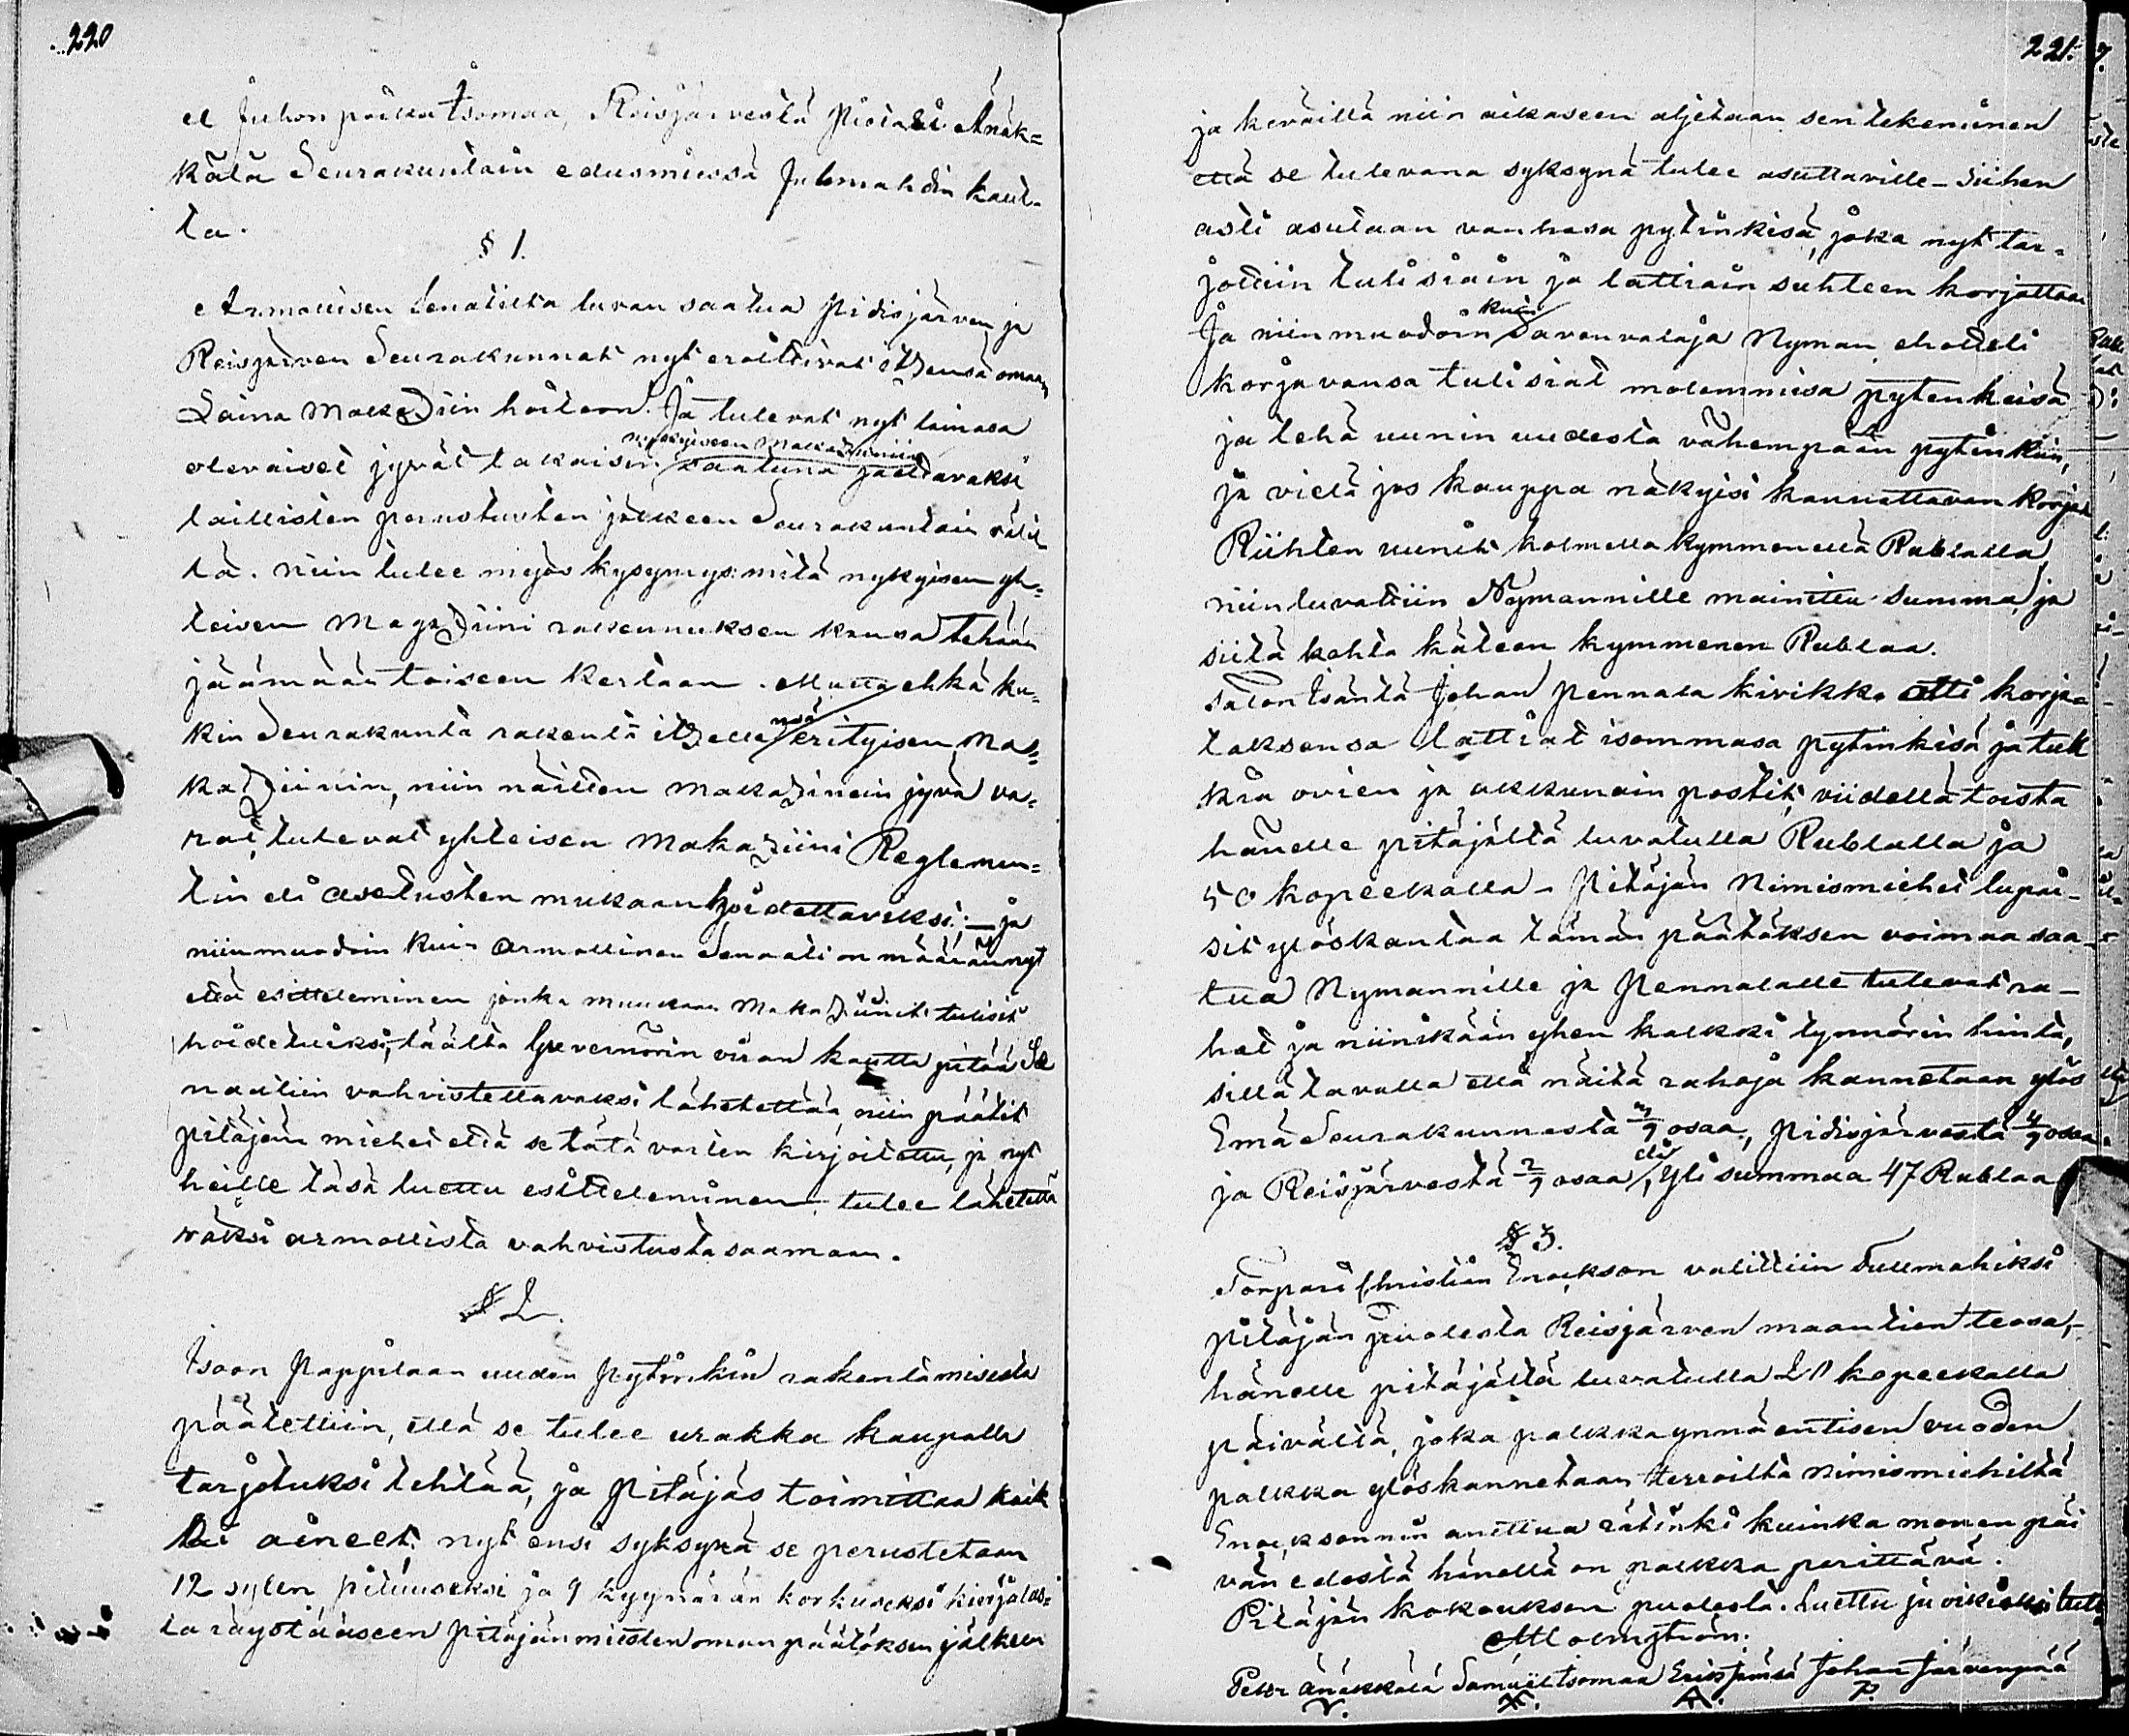 220
el Juhon poika Isomaa, Reisjärvestä Pietari Änäk=
kälä Seurakuntain edusmiessä Julmahdin kaut-
ta.
§ 1.
Armollisen Senatilta luvan saatua Pidisjärven ja
Reisjärven Seurakunnat nyt eroittivat itzensä omaan
Laina Makaziin hoitoon. Ja tulevat nyt lainasa
nykyiseen Makaziiniin
olevaiset jyvät takaisin saatuna jaettavaksi
laillisten perustusten jälkeen Seurakuntain välil
tä. niin tulee myös kysymys: mitä nykyisen yh=
teisen Magaziini rakennuksen kansa tehään
jäämään toiseen kertaan. Mutta ehkä ku=
kin Seurakunta rakentā itzellensä erityisen Ma=
kaziinin, niin näitten Makazinein jyvä va=
rat, tulevat yhteisen Makaziini Reglemen=
tin eli asetusten mukaan hoidettaviksi; — ja
niinmuodoin kuin Armollinen Senaati on määrännyt
että esitteleminen jonka muukaan Makaziinit tulisit
hoidetuiksi, täältä Guvernörin viran kautta pitää Se
naatiin vahvistettavaksi lähetettää, niin päätit
pitäjän miehet että se tätä varten kirjoitettu, ja nyt
heille täsä luettu esitteleminen tulee lähetettä
väksi armollista vahvistusta saamaan.
§ 2.
Isoon Pappilaan uuden Pytinkin rakentamisesta
päätettiin, että se tulee urakka kaupalla
tarjotuksi tehtää, ja Pitäjäs toimittaa kaik
ki aineet; nyt ensi syksynä se perustetaan
12 sylen pituuseksi ja 9 kyynärän korkuseksi kivijalas=
ta räystääseen Pitäjänmiesten oman päätöksen jälkeen
221.
ja keväillä niin aikaseen aljetaan sen tekeminen
että se tulevana syksynä tulee asuttaville – siihen
asti asutaan vanhasa pytinkisä, joka nyt tar=
jottiin tulisiain ja lattiain suhteen korjattaa
Ja niinmuodoin kuin Savenvalaja Nyman ehotteli
korjavansa tulisiat molemmisa pytenkeisä
ja tehä uunin uudesta vähempään pytinkiin,
ja vielä jos kauppa näkyisi kannattavan korjat
Riihten uunit kolmella kymmenellä Rublalla,
niin luvattiin Nymannille mainittu summa, ja
siitä kohta käteen kymmenen Rublaa.
Talon Isäntä Johan Pennala Kivikko otti korja=
taksensa lattiat isommasa pytinkisä ja tuk
kia ovien ja akkunain postit, viidellä toista
hänelle pitäjältä luvatulla Rublalla ja
50 kopeekalla – Pitäjän Nimismiehet lupai-
sit ylöskantaa tämän päätöksen voimaa saa-
tua Nymannille ja Pennalalle tulevat ra-
hat ja niinikään yhen kalkki tynnörin hinta,
sillä tavalla että näitä rahoja kannetaan ylös
Emä Seurakunnasta 3/9 osaa, Pidisjärvestä 4/9 osaa
ja Reisjärvestä 2/9 osaa, eli yli summaa 47 Rublaa
§ 3.
Torpari Christian Enocksson valittiin Fullmahiksi
pitäjän puolesta Reisjärven maantien teosa,–
hänelle pitäjältä luvatulla 20 kopeekalla
päivältä, joka palkka ynnä entisen vuoden
palkka ylöskannetaan Herroilta Nimismiehiltä
Enocksonnin anettua rätinki kuinka monen päi
vän edestä hänellä on palkka perittävä.
Pitäjän kokouksen puolesta. Luettu ja oikiaksi tutt.
Malmström.
Petter Änäkkälä Samuel Isomaa Eric Jämsä Johan Järvenpää